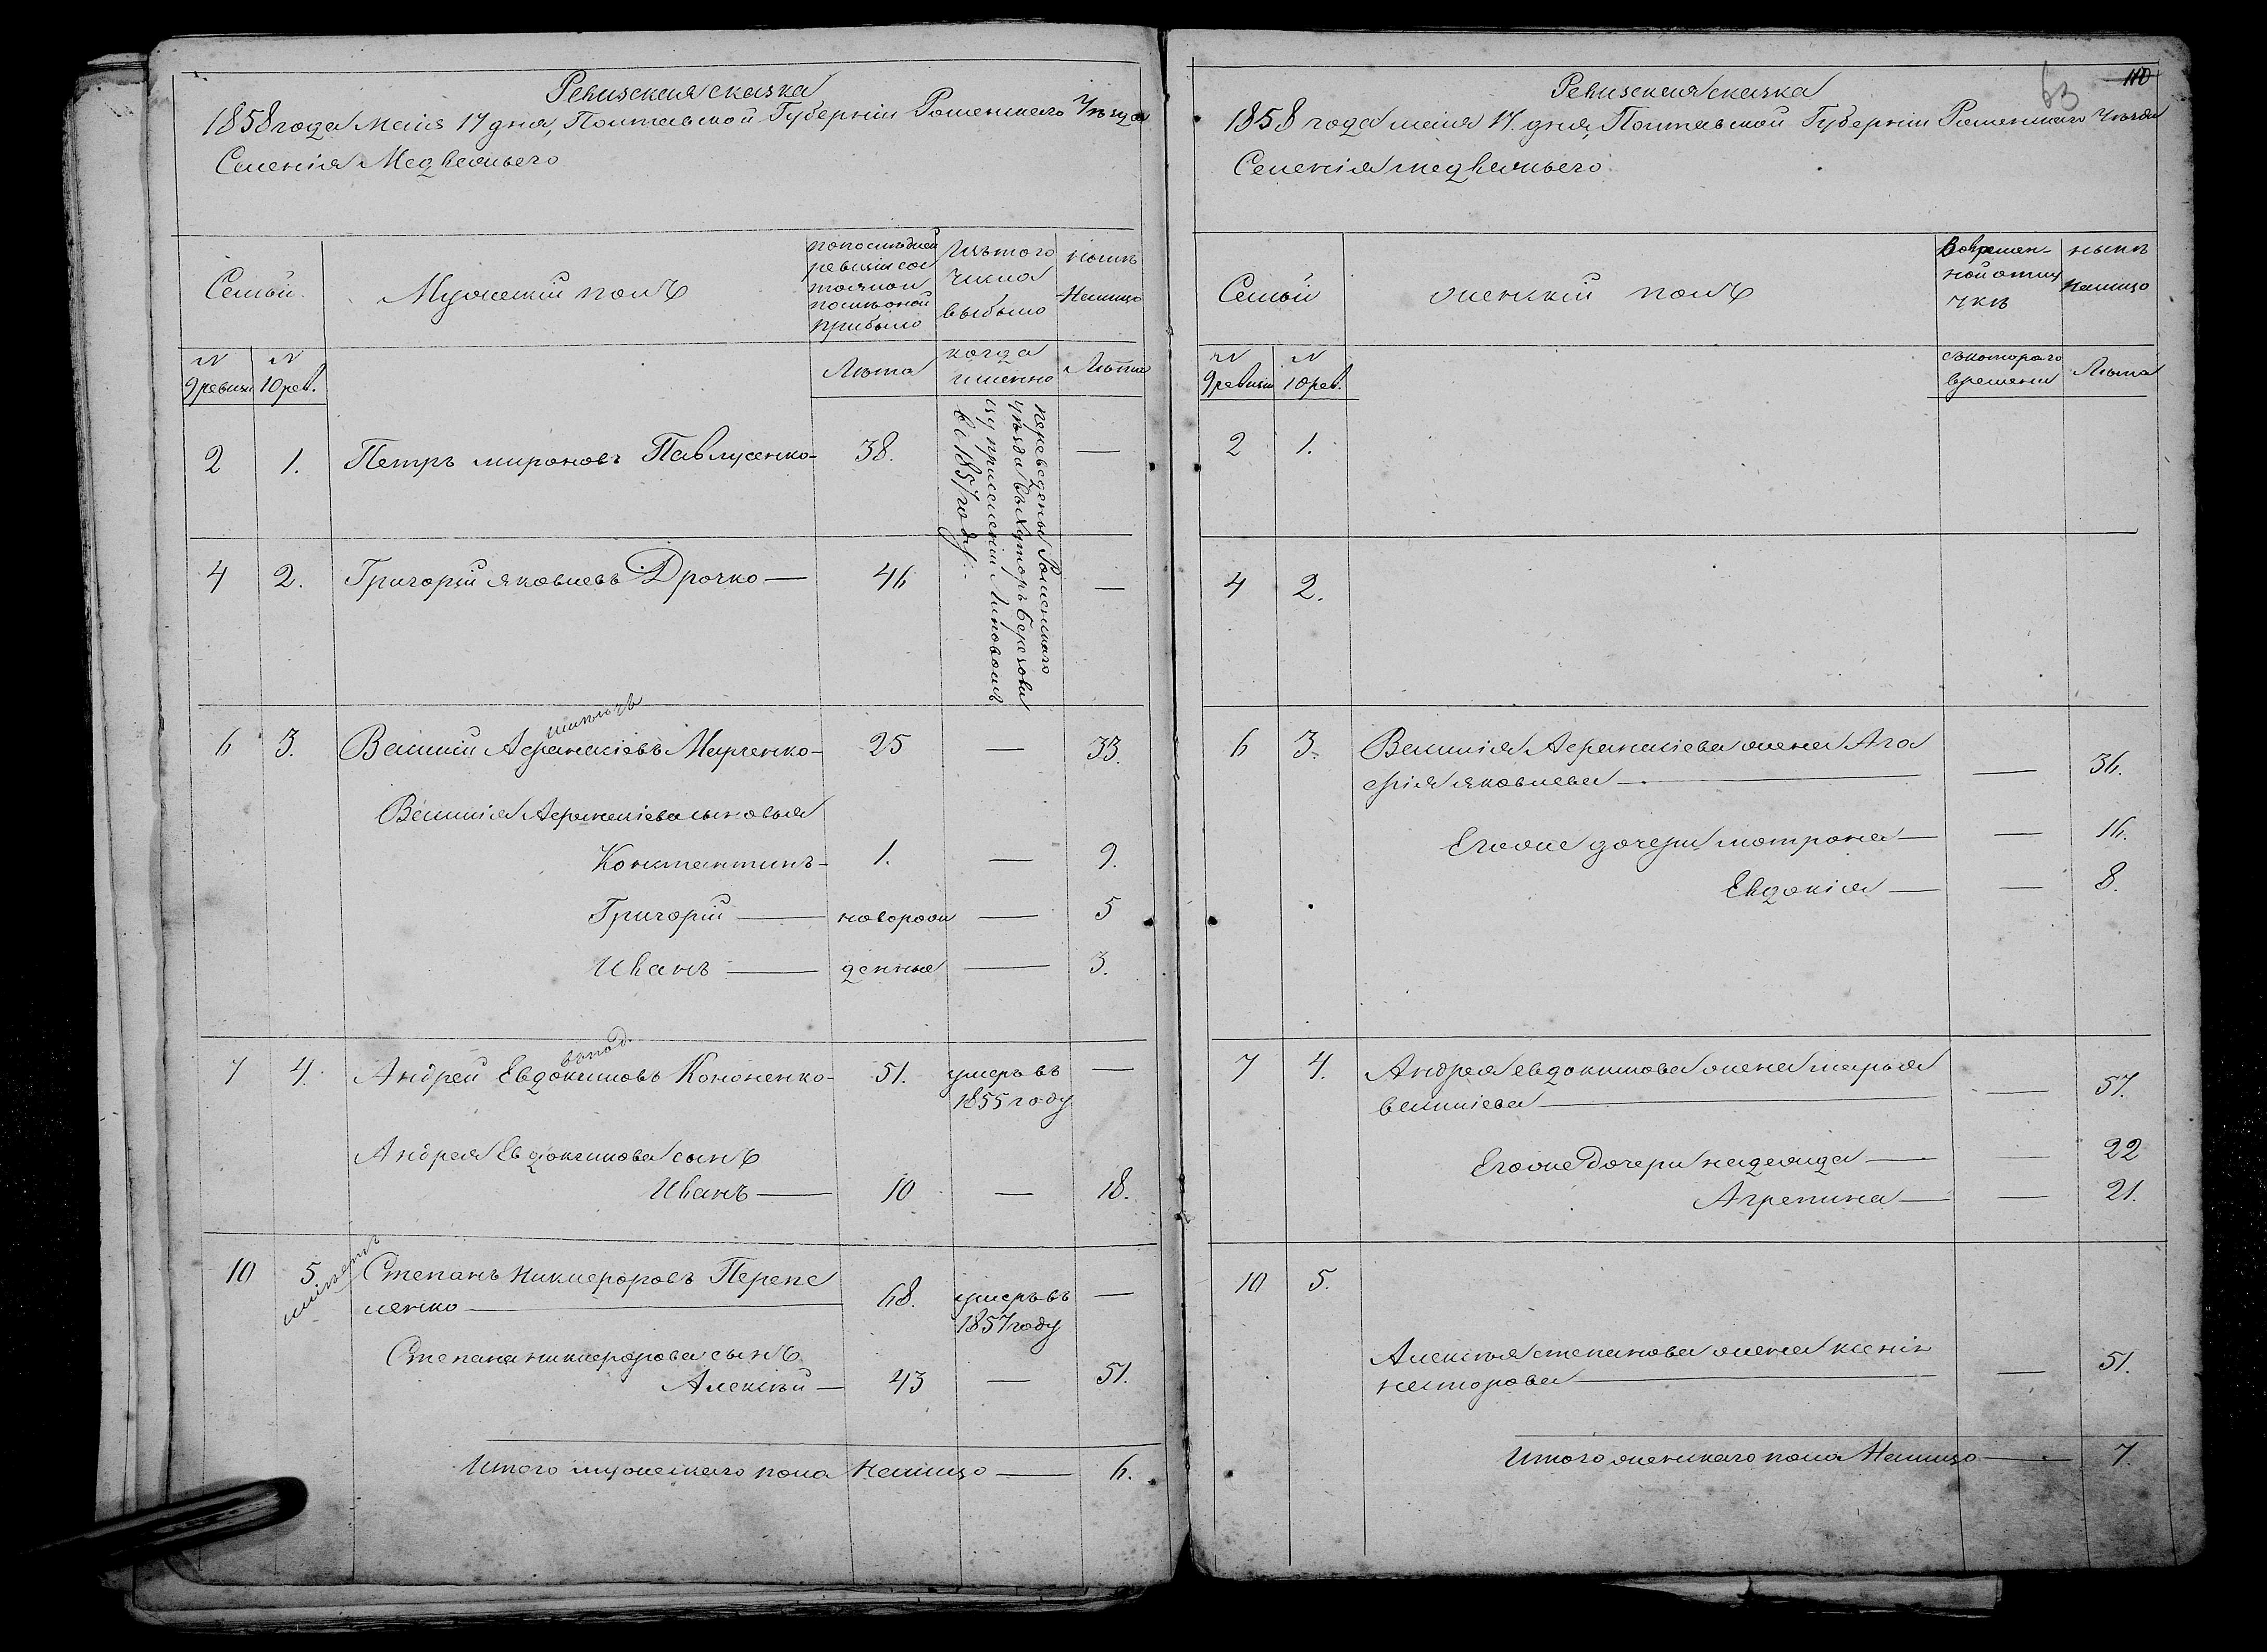 Ревизская сказка
1858 года Маія 17 дня, Полтавской Губерніи Роменскаго Уѣзда
Селенія Медвежьего
Семьи
Мужескій полъ
по последней
ревизіи со
стояло и
после оной
прибыло
Изъ того
числа
выбыло
нынѣ
Налицо
N
9 ревизіи
N
10 рев.
Лѣта
когда
именно
Лѣта
2 1. Петръ Мироновъ Павлусенко 38. —
переведены Роменскаго
уѣзда въ Хуторъ Березови
цу при селеніи Липовомъ
въ 1857 году.
4 2. Григорій Яковлевъ Дрочко — 46 —
6 3. Василій Афанасіевъ Марченко 25 — 33.
Василія Афанасіева сыновья
Константинъ 1. — 9.
Григорій — ново рож — 5
Иванъ — денные — 3.
7 4. Андрей Евдокимовъ Кононенко 51. умеръ въ —
1855 году
Андрея Евдокимова сынъ
Иванъ — 10 — 18.
10 5. Степанъ Никифоровъ Перепе
ленко — 68. умеръ въ —
1857 году
Степана Никифорова сынъ
Алексѣй — 43 — 51.
Итого мужескаго пола Налицо — 6.
63
110
Ревизская сказка
1858 года маія 17. дня, Полтавской Губерніи Роменскаго Уѣзда
Селенія медвежьего
Семьи
женскій полъ
Во времен-
ной отлу
чкѣ
нынѣ
налицо
N
9 ревизіи
N
10 рев.
съ котораго
времени
Лѣта
2 1.
4 2.
6 3. Василія Афанасіева жена Ага
фія Яковлева — — 36.
Его же дочери мотрона — — 16.
Евдокія — — 8.
7 4. Андрея евдокимова жена марья
василіева — — 57.
Его же Дочери надежда — — 22
Агрепина — — 21.
10 5.
Алексѣя степанова жена ксенія
нестерова — — 51.
Итого женскаго пола Налицо — 7.